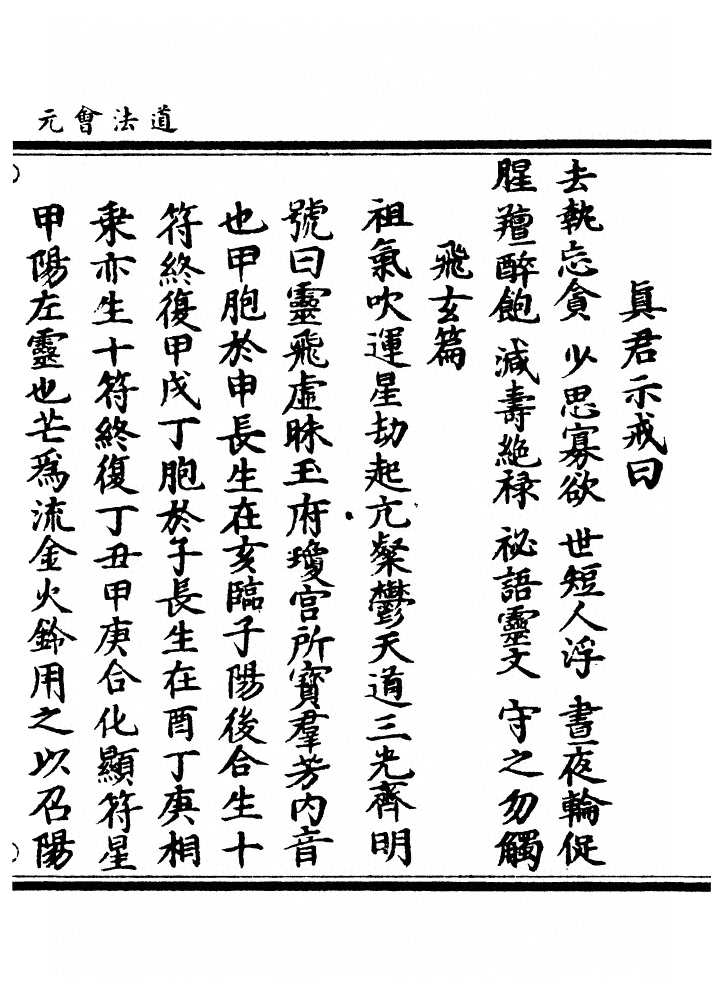 道法會元
眞君示戒曰
去執忘貪 少思寡欲 世短人浮 晝夜輪促
腥羶醉飽 減壽絶祿 祕語靈文 守之勿觸
飛玄篇
祖氣吹運星劫起亢粲鬱天道三光齊明
號曰靈飛虛昧玉府瓊宫所寶羣芳内音
也甲胞於申長生在亥臨子陽後合生十
符終復甲戌丁胞於子長生在酉丁庚相
乘亦生十符終復丁丑甲庚合化顯符星
甲陽左靈也芒爲流金火鈴用之以召陽